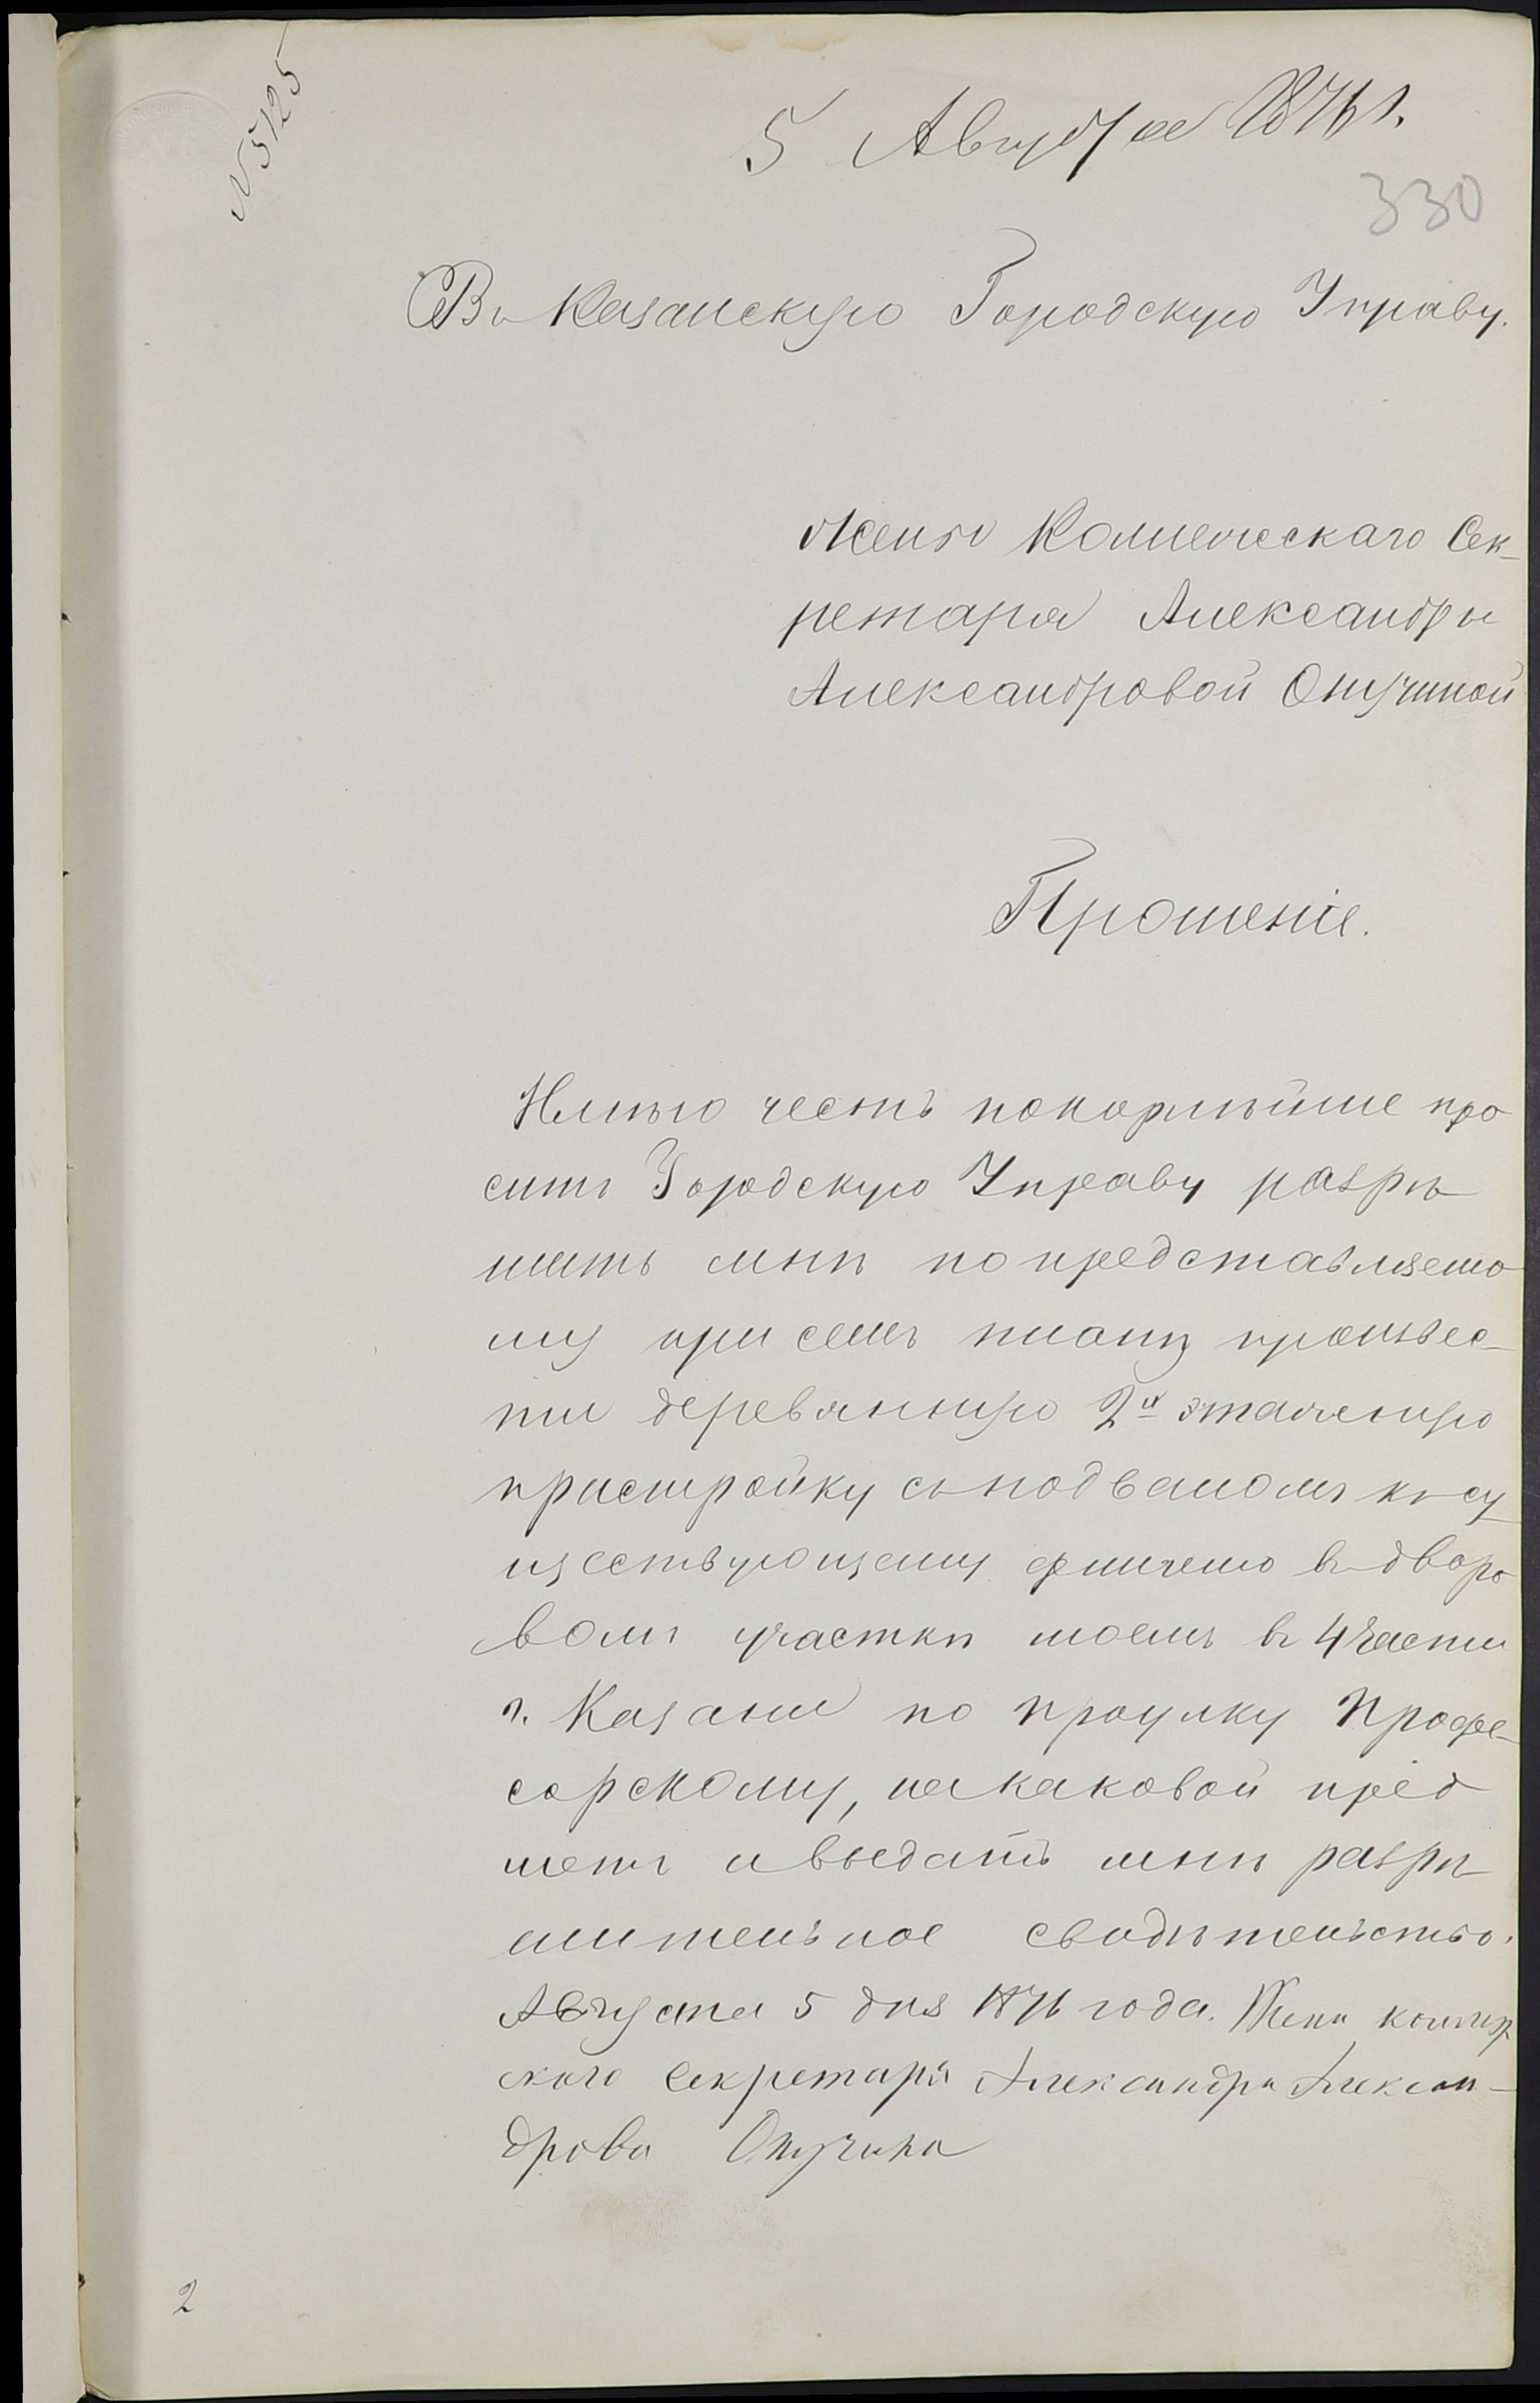 N 5125
5 Августа 1876 г.
330
Въ Казанскую Городскую Управу.
Жены Коллежскаго Сек-
ретаря Александры
Александровой Опучиной
Прошеніе.
Имѣю честь покорнѣйше про
сить Городскую Управу разрѣ
шить мнѣ по представляемо
му при семъ плану произвес-
ти деревянную 2х этажную
пристройку съ подваломъ къ су
ществующему флигелю въ дворо
вомъ участкѣ моемъ въ 4 части
г. Казани по проулку Профе-
сорскому, на каковой пред
метъ и выдать мнѣ разрѣ
шительное свидѣтельство.
Августа 5 дня 1876 года. Жена коллеж
ского секретаря Александра Алексан-
дрова Опучина
2